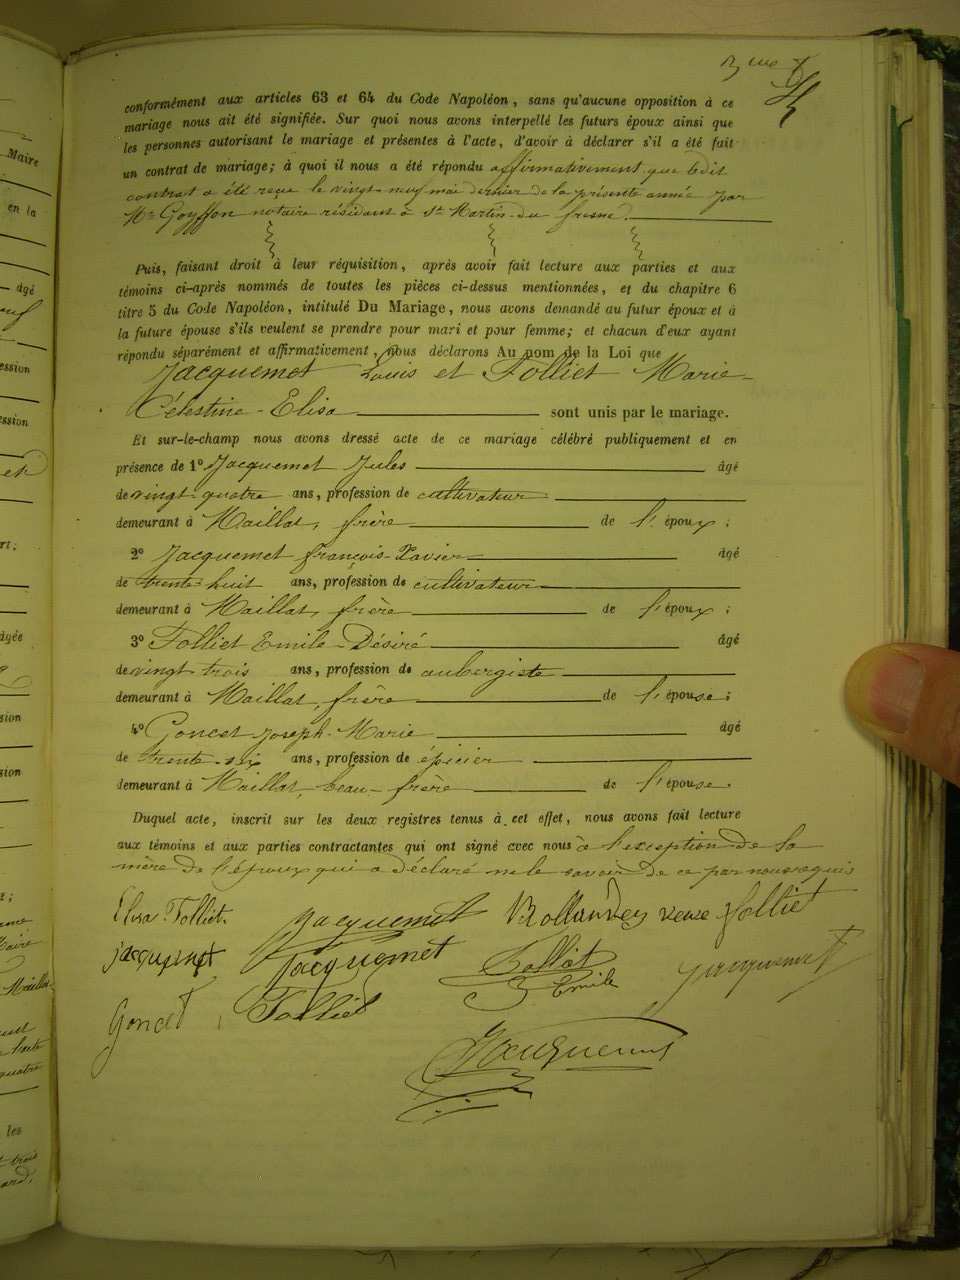 conformément aux articles 63 et 64 du Code Napoléon, sans qu'aucune opposition à ce
mariage nous ait été signifiée. Sur quoi nous avons interpellé les futurs époux ainsi que
les personnes autorisant le mariage et présentes à l'acte, d'avoir à déclarer s'il a été fait
un contrat de mariage; à quoi il nous a été répondu affirmativement que ledit
contrat a été reçu le vingt-neuf mai dernier de la présente année par
Me Goyffon notaire résidant à St Martin-du fresne.
Puis, faisant droit à leur réquisition, après avoir fait lecture aux parties et aux
témoins ci-après nommés de toutes les pièces ci-dessus mentionnées, et du chapitre 6
titre 5 du Code Napoléon, intitulé Du Mariage, nous avons demandé au futur époux et à
la future épouse s'ils veulent se prendre pour mari et pour femme; et chacun d'eux ayant
répondu séparément et affirmativement, nous déclarons Au nom de la Loi que
Jacquemet Louis et Folliet Marie-
Célestine-Elisa sont unis par le mariage.
Et sur-le-champ nous avons dressé acte de ce mariage célébré publiquement et en
présence de 1° Jacquemet Jules âgé
de vingt-quatre ans, profession de cultivateur
demeurant à Maillat, frère de l'époux;
2° Jacquemet françois-Xavier âgé
de trente-huit ans, profession de cultivateur
demeurant à Maillat, frère de l'époux;
3° Folliet Emile-Désiré âgé
de vingt-trois ans, profession de aubergiste
demeurant à Maillat, frère de l'épouse;
4° Goncet Joseph-Marie âgé
de trente-six ans, profession de épicier
demeurant à Maillat, beau-frère de l'épouse.
Duquel acte, inscrit sur les deux registres tenus à cet effet, nous avons fait lecture
aux témoins et aux parties contractantes qui ont signé avec nous à l'exception de la
mère de l'époux qui a déclaré ne le savoir de ce par nous requis
Elisa Folliet. Jacquemet veuve Folliet
jacquemet Jacquemet Folliet Emile Jacquemet
Goncet Folliet
Jacquemet